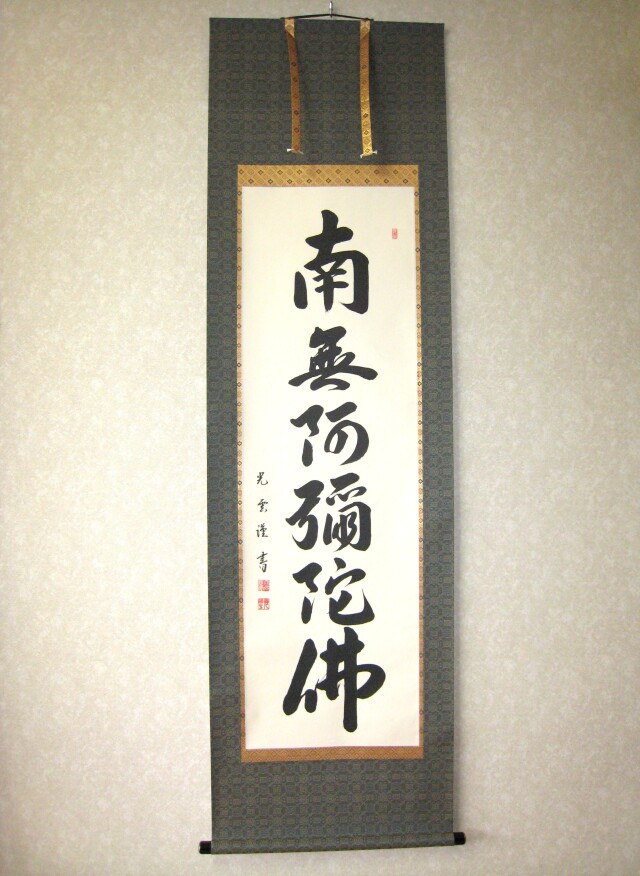 南無阿彌陀佛
光雲謹書